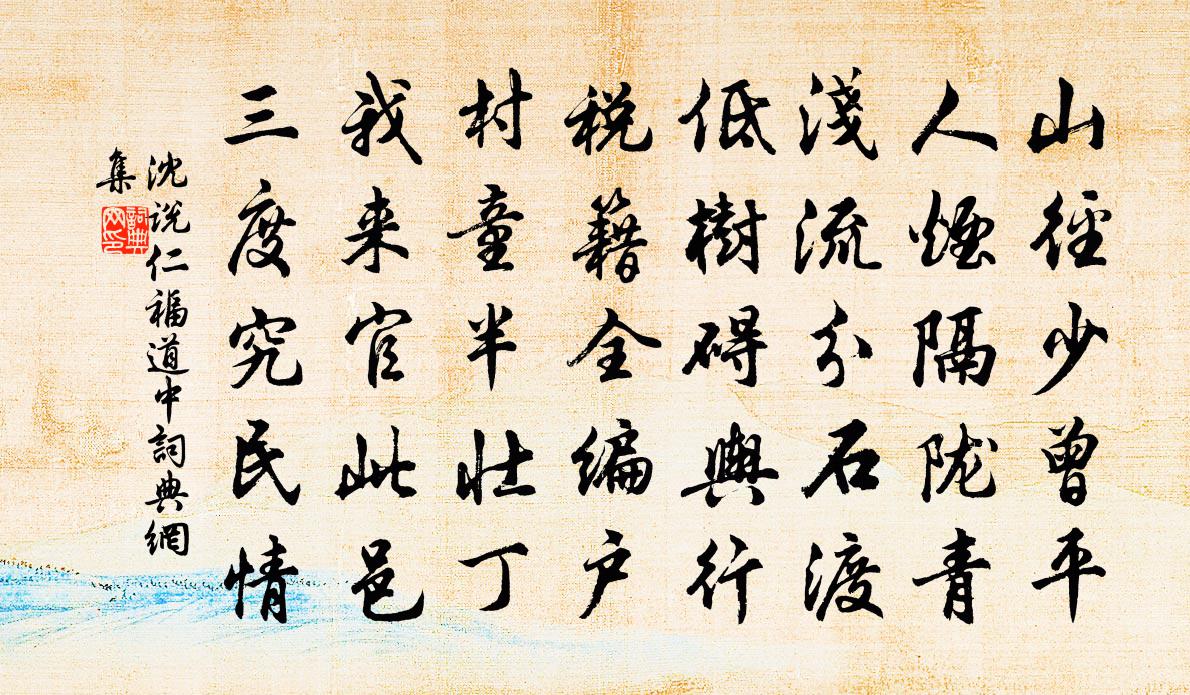 山径少曾平
人煙隔陇青
淺流分石渡
低樹碍輿行
税籍全编户
村童半壮丁
我来官此邑
三度究民情
沈说仁福道中詞典網
集
詞典网印